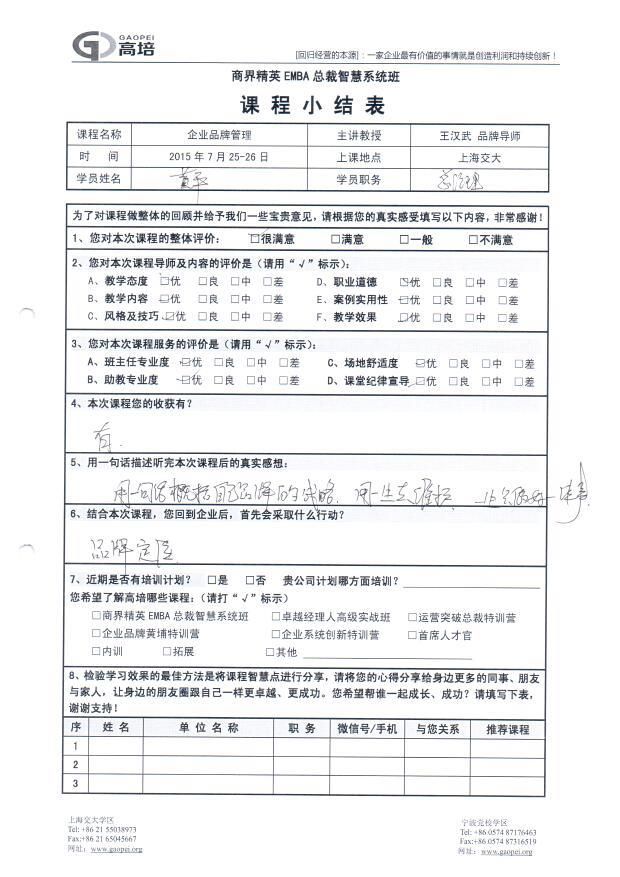 GAOPEI
高培
[回归经营的本源]：一家企业最有价值的事情就是创造利润和持续创新！
商界精英 EMBA 总裁智慧系统班
课程小结表
课程名称 企业品牌管理 主讲教授 王汉武 品牌导师
时 间 2015 年 7 月 25-26 日 上课地点 上海交大
学员姓名 学员职务 总经理
为了对课程做整体的回顾并给予我们一些宝贵意见，请根据您的真实感受填写以下内容，非常感谢！
1、您对本次课程的整体评价： □很满意 □满意 □一般 □不满意
2、您对本次课程导师及内容的评价是（请用“√”标示）：
A、教学态度 □优 □良 □中 □差 D、职业道德 □优 □良 □中 □差
B、教学内容 □优 □良 □中 □差 E、案例实用性 □优 □良 □中 □差
C、风格及技巧 □优 □良 □中 □差 F、教学效果 □优 □良 □中 □差
3、您对本次课程服务的评价是（请用“√”标示）：
A、班主任专业度 □优 □良 □中 □差 C、场地舒适度 □优 □良 □中 □差
B、助教专业度 □优 □良 □中 □差 D、课堂纪律宣导 □优 □良 □中 □差
4、本次课程您的收获有？
有.
5、用一句话描述听完本次课程后的真实感想：
用一句话概括自己品牌的战略. 用一生去
6、结合本次课程，您回到企业后，首先会采取什么行动？
品牌定位
7、近期是否有培训计划？ □是 □否 贵公司计划哪方面培训？
您希望了解高培哪些课程：（请打“√”标示）
□商界精英 EMBA 总裁智慧系统班 □卓越经理人高级实战班 □运营突破总裁特训营
□企业品牌黄埔特训营 □企业系统创新特训营 □首席人才官
□内训 □拓展 □其他
8、检验学习效果的最佳方法是将课程智慧点进行分享，请将您的心得分享给身边更多的同事、朋友
与家人，让身边的朋友圈跟自己一样更卓越、更成功。您希望帮谁一起成长、成功？请填写下表，
谢谢支持！
序 姓 名 单 位 名 称 职 务 微信号/手机 与您关系 推荐课程
1
2
3
上海交大学区 宁波党校学区
Tel: +86 21 55038973 Tel: +86.0574 87176463
Fax:+86 21 65045667 Fax:+86.0574 87316519
网址：www.gaopei.org 网址：www.gaopei.org